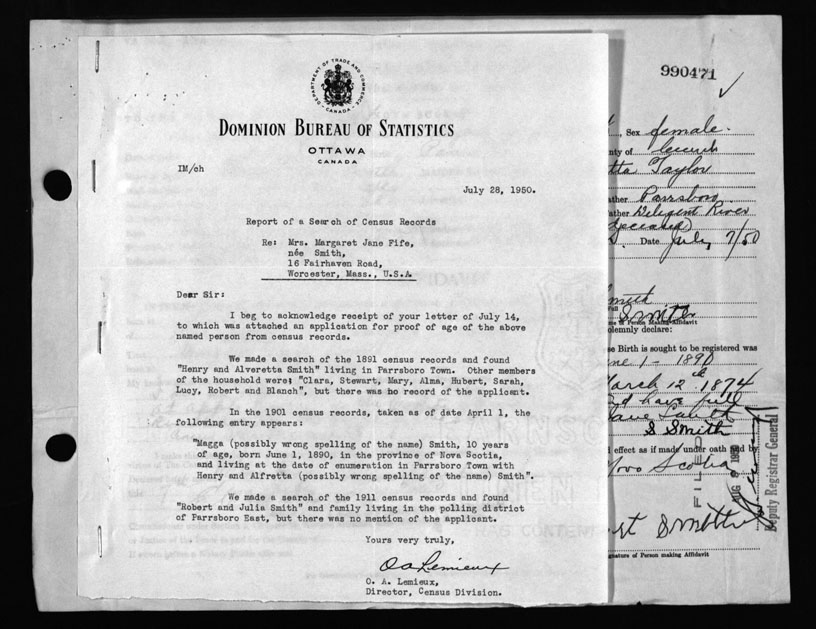 DEPARTMENT OF TRADE AND COMMERCE
CANADA
DOMINION BUREAU OF STATISTICS
OTTAWA
CANADA
IM/ch
July 28, 1950.
Report of a Search of Census Records
Re: Mrs. Margaret Jane Fife,
née Smith,
16 Fairhaven Road,
Worcester, Mass., U.S.A.
Dear Sir:
I beg to acknowledge receipt of your letter of July 14,
to which was attached an application for proof of age of the above
named person from census records.
We made a search of the 1891 census records and found
"Henry and Alveretta Smith" living in Parrsboro Town. Other members
of the household were: "Clara, Stewart, Mary, Alma, Hubert, Sarah,
Lucy, Robert and Blanch", but there was no record of the applicant.
In the 1901 census records, taken as of date April 1, the
following entry appears:
"Magga (possibly wrong spelling of the name) Smith, 10 years
of age, born June 1, 1890, in the province of Nova Scotia,
and living at the date of enumeration in Parrsboro Town with
Henry and Alfretta (possibly wrong spelling of the name) Smith".
We made a search of the 1911 census records and found
"Robert and Julia Smith" and family living in the polling district
of Parrsboro East, but there was no mention of the applicant.
Yours very truly,
O A Lemieux
O. A. Lemieux,
Director, Census Division.
990471
, Sex female.
nty of
tta Taylor
ather Parrsboro
ather Deligent River
deceased
Date July 7/50
mith
Smith
me of Person Making Affidavit
olemnly declare:
se Birth is sought to be registered was
ne 1 - 1890
March 12 1874
nd have full
S Smith
l effect as if made under oath
Nova Scotia
FILED
AUG 8 1950
Deputy Registrar General
rt Smith
ignature of Person making Affidavit